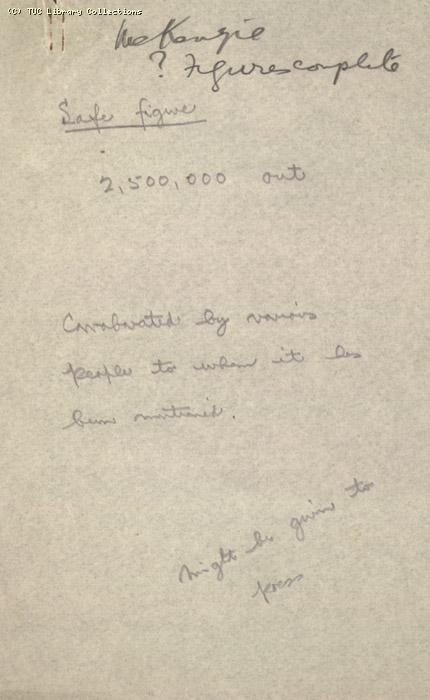 (C) TUC Library Collections
McKenzie
? Figures complete
Safe figure
2,500,000 out
Corroborated by various
people to whom it has
been mentioned.
might be given to
press